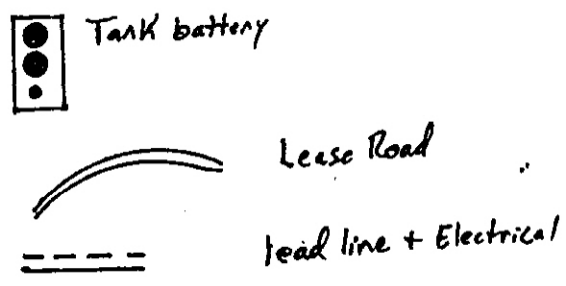 Tank battery
Lease Road
lead line + Electrical